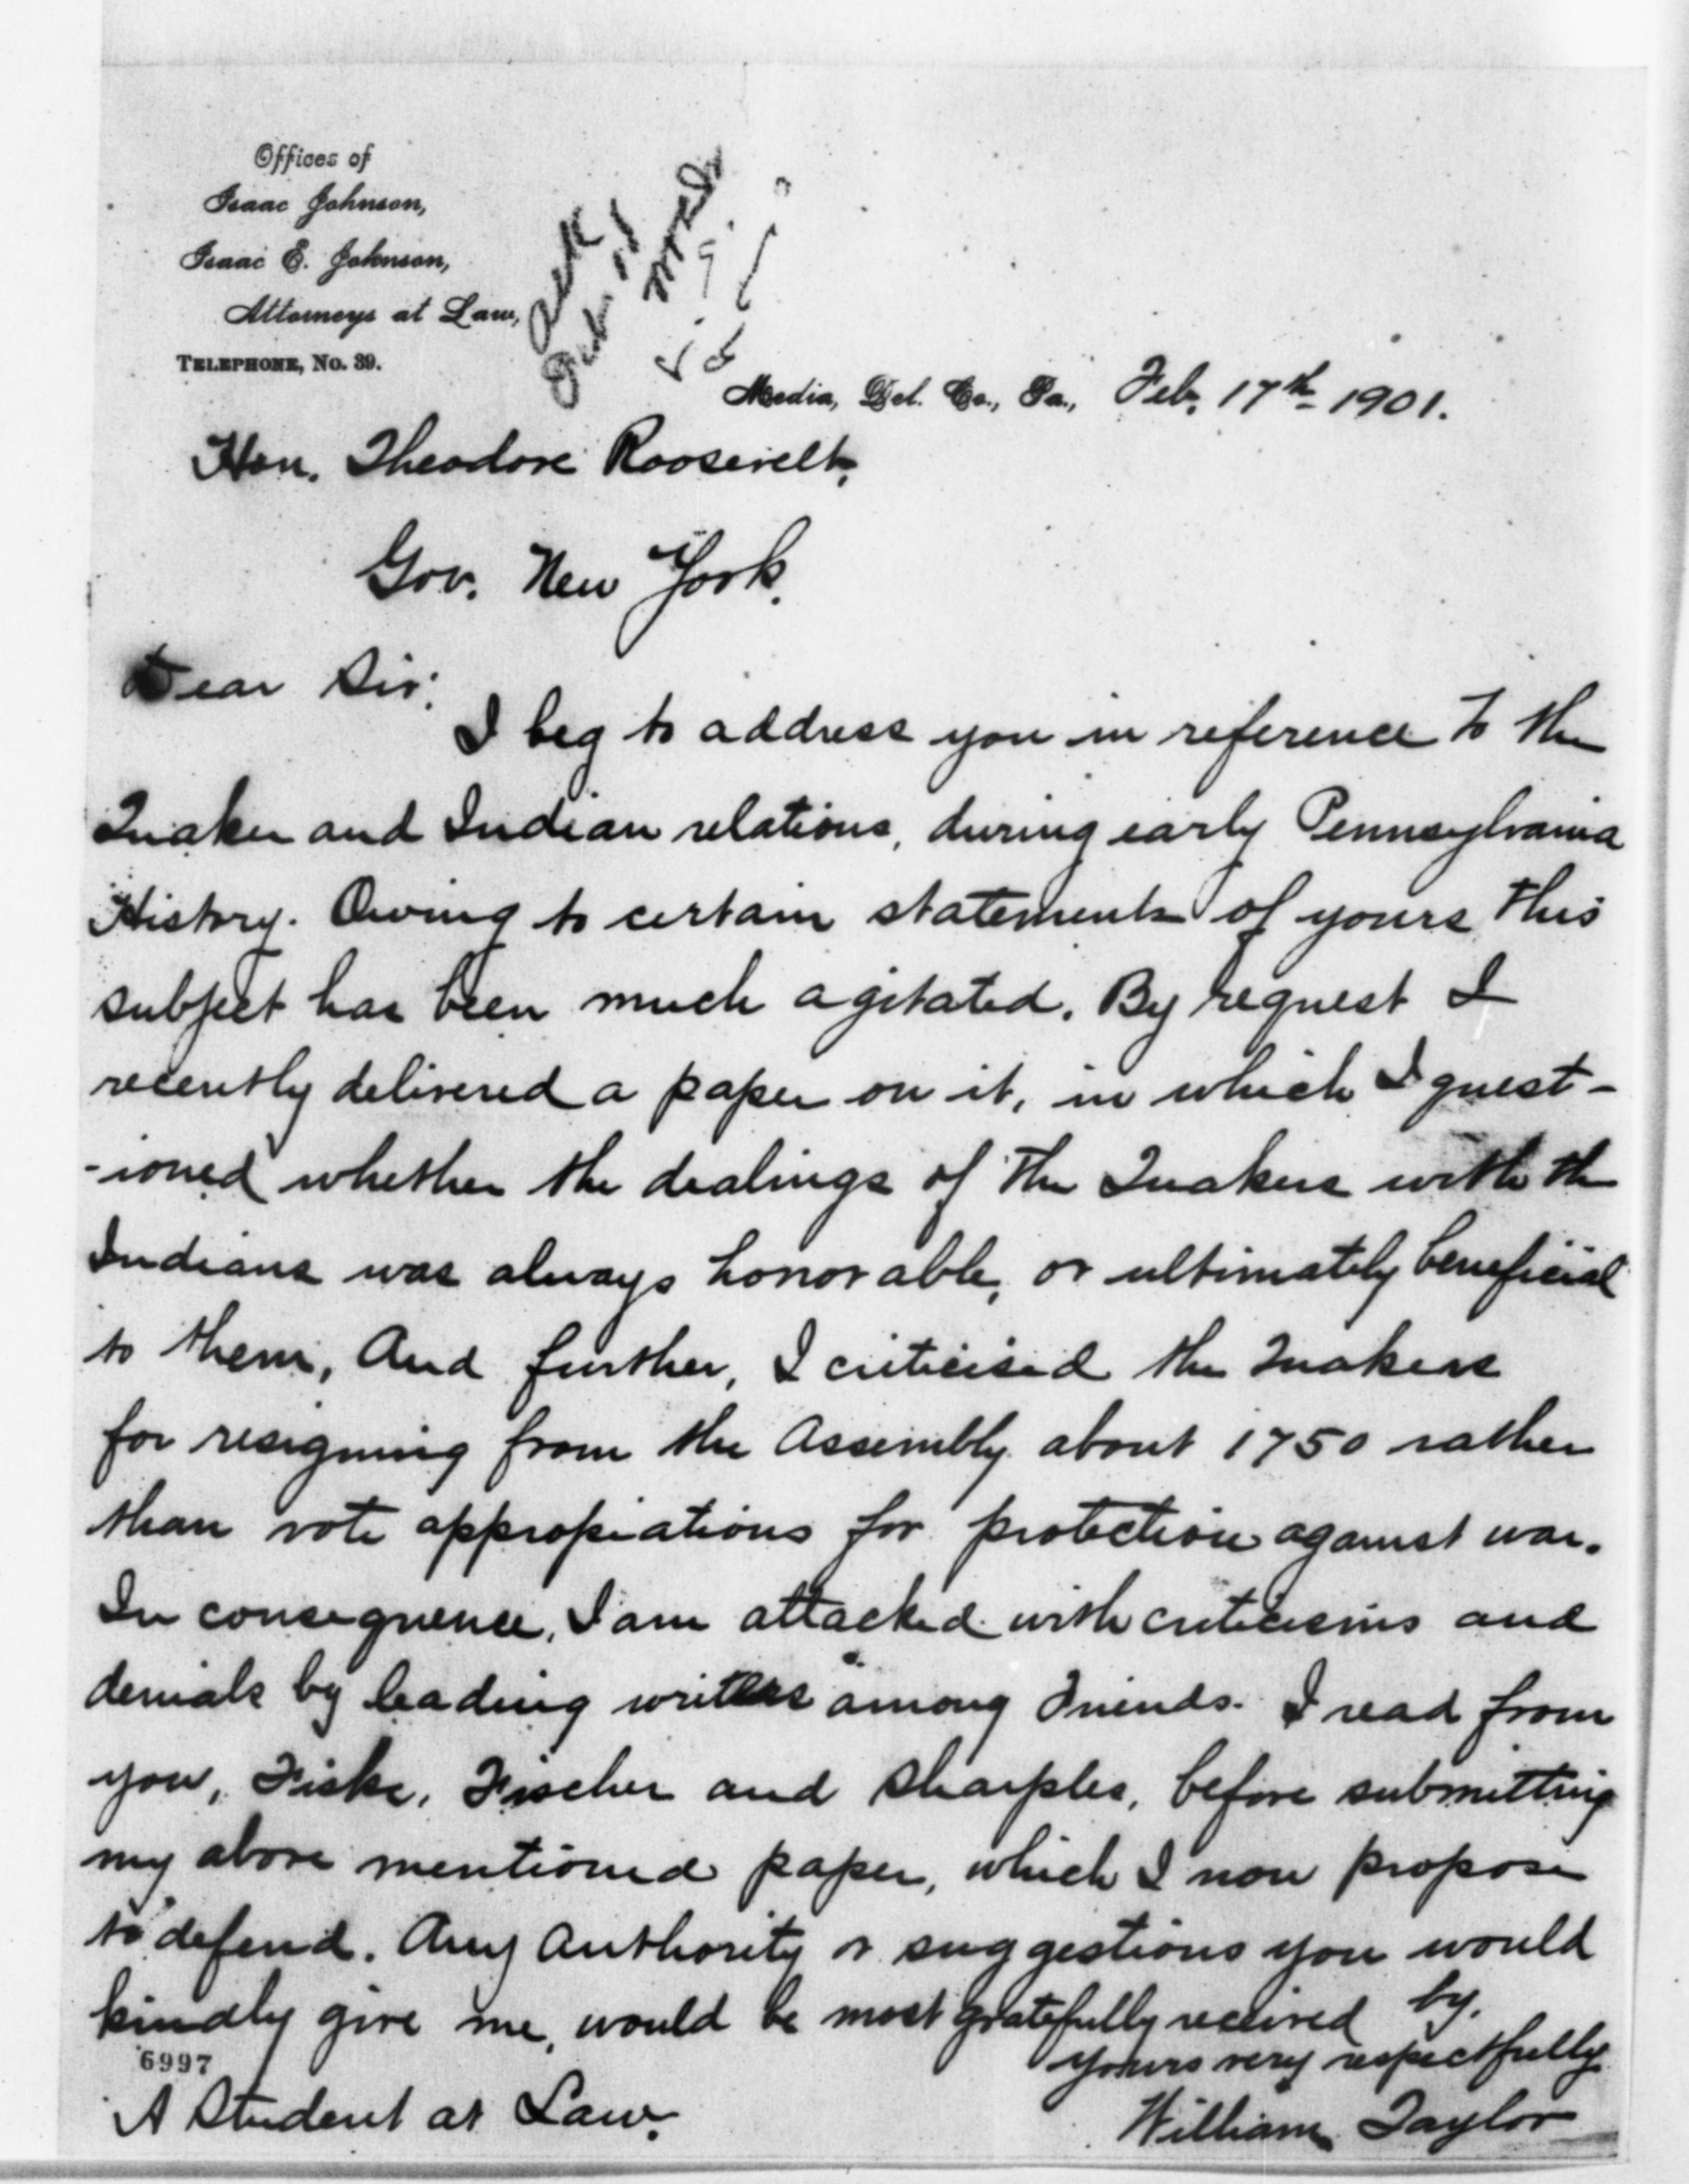 Offices of
Isaac Johnson,
Isaac E. Johnson,
Attorneys at Law,
TELEPHONE, No. 39.
Ack
Media, Del. Co., Pa., Feb. 17th 1901.
Hon. Theodore Roosevelt,
Gov. New York.
Dear Sir:
I beg to address you in reference to the
Quaker and Indian relations, during early Pennsylvania
History. Owing to certain statements of yours this
subject has been much agitated. By request I
recently delivered a paper on it, in which I quest-
-ioned whether the dealings of the Quakers with the
Indians was always honorable, or ultimately beneficial
to them, And further, I criticised the Quakers
for resigning from the Assembly about 1750 rather
than vote appropiations for protection against war.
In consequence, I am attacked with criticisms and
denials by leading writers among Friends. I read from
you, Fiske, Fischer and Sharples, before submitting
my above mentioned paper, which I now propose
to defend. Any Authority or suggestions you would
kindly give me, would be most gratefully received by.
yours very respectfully
6997
A Student at Law.
William Taylor